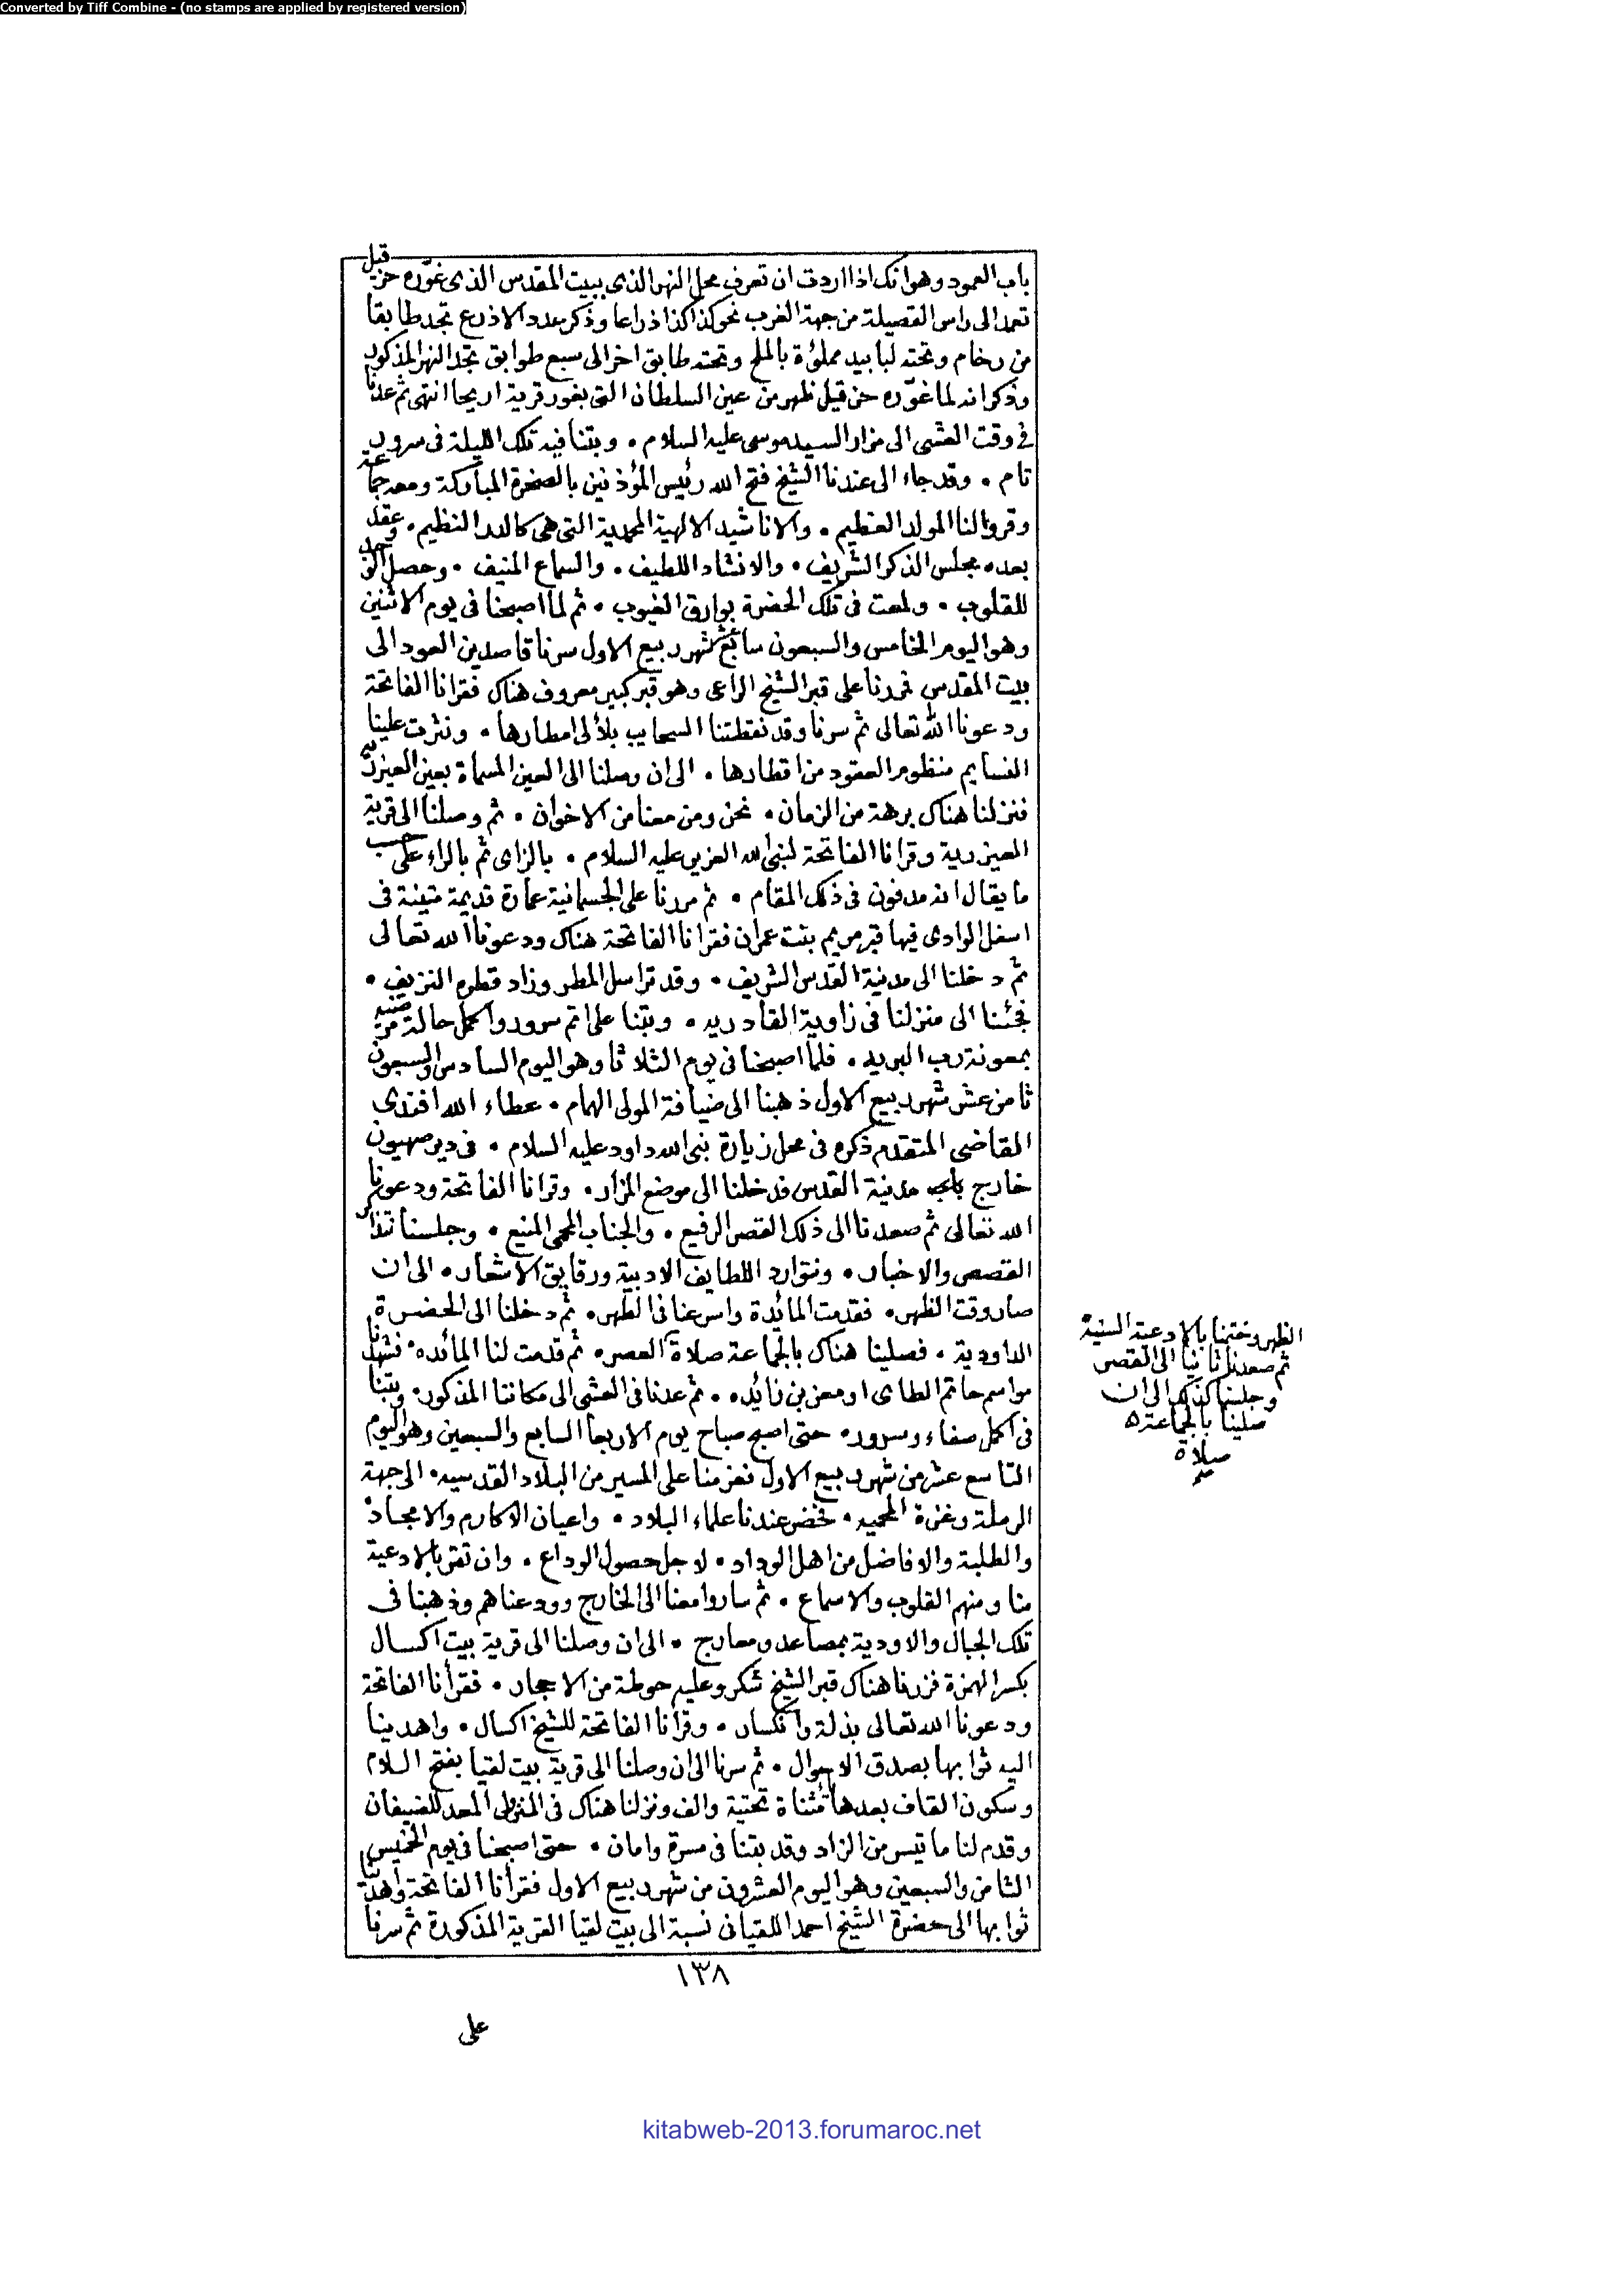 Converted by Tiff Combine - (no stamps are applied by registered version)
باب العمود وهو انك اذا اردت ان تعرف محل النهر الذى ببيت المقدس الذى غوّره حزقيل
تعمد الى راس الفصيلة من جهة الغرب نحو كذا كذا ذراعا وذكر عدد الاذرع تجد طابقا
من رخام وتحته لبابيد مملؤة بالملح وتحته طابق اخر الى سبع طوابق تجد النهر المذكور
وذكر انه لما غوّره حزقيل ظهر من عين السلطان التى بغور قرية اريحا انتهى ثم عدنا
فى وقت العشى الى مزار السيد موسى عليه السلام . وبتنا فيه تلك الليلة فى سرور
تام . وقد جاء الى عندنا الشيخ فتح الله رئيس المؤذنين بالصخرة المباركة ومعه جماعة
وقروا لنا المولد العظيم . والاناشيد الالهية المحمدية التى هى كالدر النظيم . وعقد
بعده مجلس الذكر الشريف . والانشاد اللطيف . والسماع المنيف . وحصل الوجد
للقلوب . ولمعت فى تلك الحضرة بوارق الغيوب . ثم لما اصبحنا فى يوم الاثنين
وهو اليوم الخامس والسبعون سابع عشر شهر ربيع الاول سرنا قاصدين العود الى
بيت المقدس فمررنا على قبر الشيخ الراعى وهو قبر كبير معروف هناك فقرانا الفاتحة
ودعونا الله تعالى ثم سرنا وقد نقطتنا السحايب بلآلى امطارها . ونثرت علينا
النسايم منظوم العقود من اقطارها . الى ان وصلنا الى العين المسماة بعين العيزرية
فنزلنا هناك برهة من الزمان . نحن ومن معنا من الاخوان . ثم وصلنا الى قرية
العيزرية وقرانا الفاتحة لنبى الله العزير عليه السلام . بالزاى ثم بالراء على حسب
ما يقال انه مدفون فى ذلك المقام . ثم مررنا على الجسمانية عمارة قديمة متينة فى
اسفل الوادى فيها قبر مريم بنت عمران فقرانا الفاتحة هناك ودعونا الله تعالى
ثم دخلنا الى مدينة القدس الشريف . وقد تراسل المطر وزاد قطره النزيف .
فجئنا الى منزلنا فى زاوية القادريه . وبتنا على اتم سرور واكمل حالة مرضيه
بمعونة رب البريه . فلما اصبحنا فى يوم الثلاثا وهو اليوم السادس والسبعون
ثامن عشر شهر ربيع الاول ذهبنا الى ضيافة المولى الهمام . عطاء الله افندى
القاضى المتقدم ذكره فى محل زيارة نبى الله داود عليه السلام . فى دير صهيون
خارج باب مدينة القدس فدخلنا الى موضع المزار . وقرانا الفاتحة ودعونا
الله تعالى ثم صعدنا الى ذلك القصر الرفيع . والجناب المحمى المنيع . وجلسنا نتذاكر
القصص والاخبار . ونتوارد اللطايف الادبية ورقايق الاشعار . الى ان
صار وقت الظهر . فقدمت المائدة واسرعنا فى الطهر . ثم دخلنا الى الحضرة
الداودية . فصلينا هناك بالجماعة صلاة العصر . ثم قدمت لنا المائده . فشهدنا
مواسم حاتم الطاى او معن بن زائده . ثم عدنا فى العشى الى مكاننا المذكور . وبتنا
فى اكمل صفاء وسرور . حتى اصبح صباح يوم الاربعا السابع والسبعين وهو اليوم
التاسع عشر من شهر ربيع الاول فعزمنا على المسير من البلاد القدسيه . الى جهة
الرملة وغزة المحميه . فحضر عندنا علماء البلاد . واعيان الاكارم والامجاد
والطلبة والافاضل من اهل الوداد . لاجل حصول الوداع . وان تقر بالادعية
منا ومنهم القلوب والاسماع . ثم ساروا معنا الى الخارج وودعناهم وذهبنا فى
تلك الجبال والاودية بمصاعد ومعارج . الى ان وصلنا الى قرية بيت اكسال
بكسر الهمزة فزرنا هناك قبر الشيخ شكر وعليه حوطة من الاحجار . فقرأنا الفاتحة
ودعونا الله تعالى بذلة وانكسار . وقرأنا الفاتحة للشيخ اكسال . واهدينا
اليه ثوابها بصدق الاحوال . ثم سرنا الى ان وصلنا الى قرية بيت لقيا بفتح اللام
وسكون القاف بعدها مثناة تحتية والف ونزلنا هناك فى المنزل المعد للضيفان
وقدم لنا ما تيسر من الزاد وقد بتنا فى مسرة وامان . حتى اصبحنا فى يوم الخميس
الثامن والسبعين وهو اليوم العشرون من شهر ربيع الاول فقرأنا الفاتحة واهدينا
ثوابها الى حضرة الشيخ احمد اللقيانى نسبة الى بيت لقيا القرية المذكورة ثم سرنا
الظهر وختمنا بالادعية السنية
ثم صعدنا ثانيا الى القصر
وجلسنا كذلك الى ان
صلينا بالجماعة
صلاة
صح
١٣٨
على
kitabweb-2013.forumaroc.net